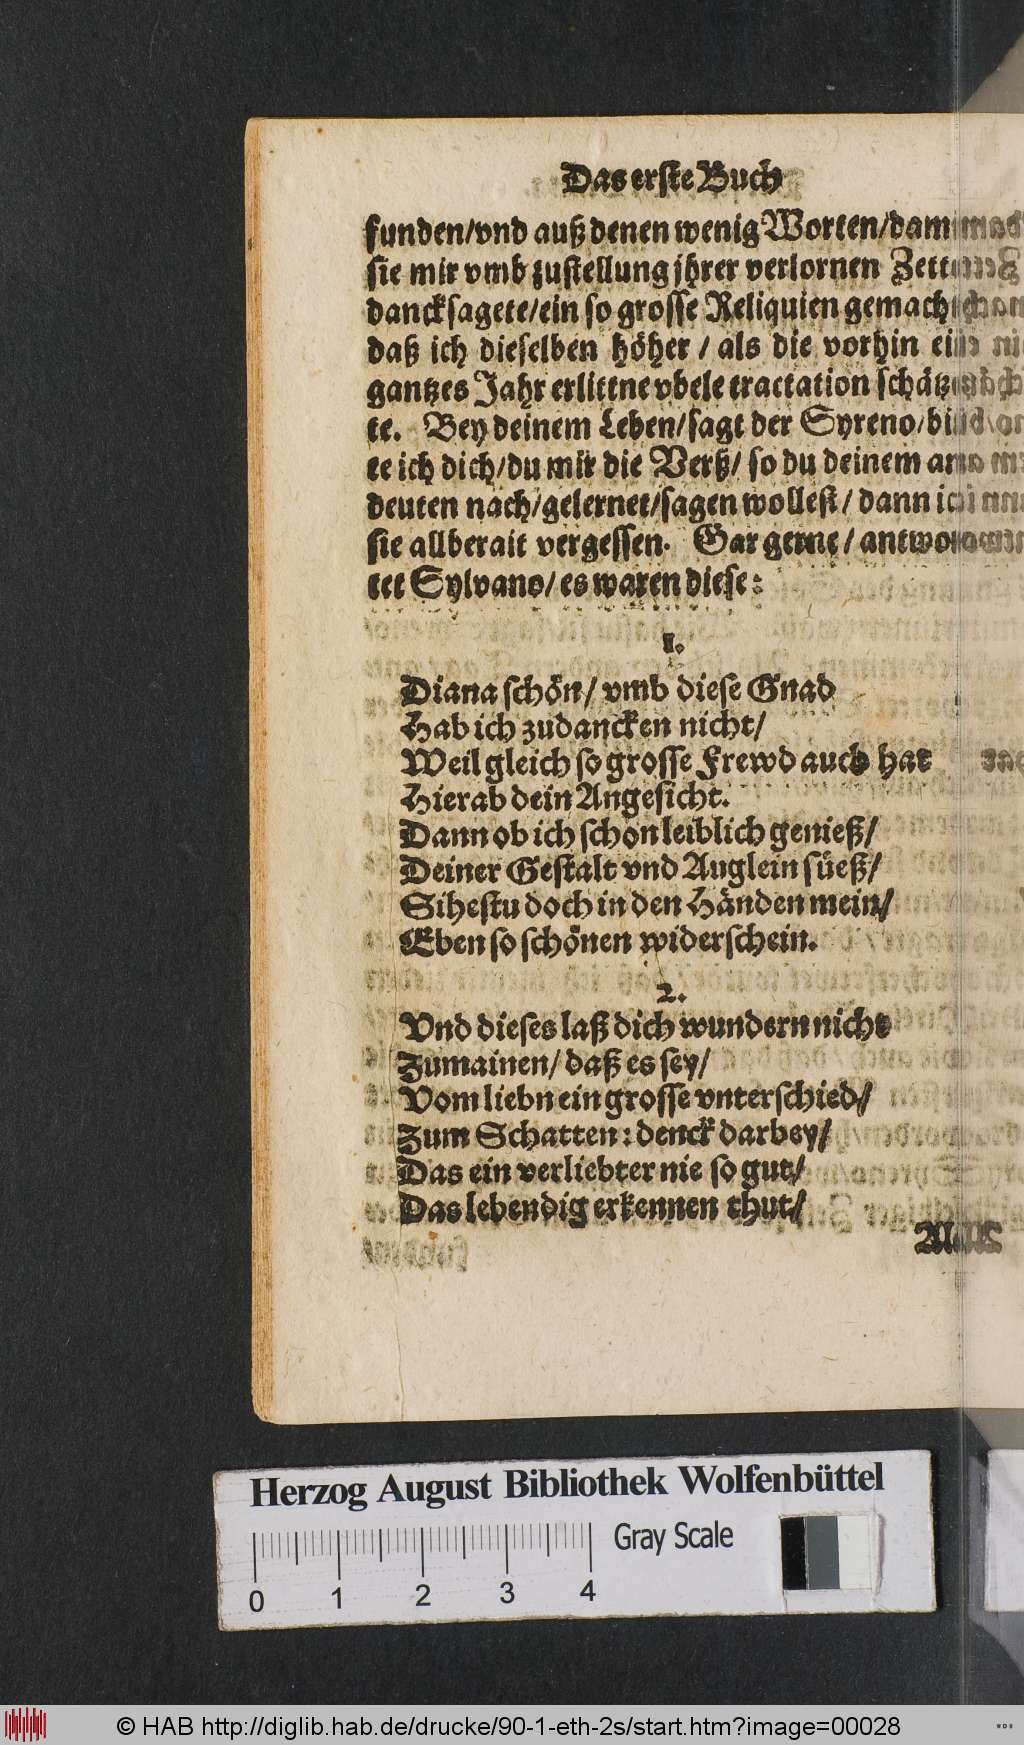 Das erste Buch
funden/vnd auß denen wenig Worten/damit
sie mir vmb zustellung jhrer verlornen
dancksagete/ein so grosse Reliquien gemacht
daß ich dieselben höher / als die vorhin ein
gantzes Jahr erlittne vbele tractation schätz
te. Bey deinem Leben/sagt der Syreno/bit
te ich dich/du mir die Verß/ so du deinem an
deuten nach/gelernet/sagen wollest/ dann ich
sie allberait vergessen. Gar gerne / antwor
tet Sylvano/ es waren diese:
1.
Diana schön/ vmb diese Gnad
Hab ich zudancken nicht/
Weil gleich so grosse Frewd auch hat
Hierab dein Angesicht.
Dann ob ich schon leiblich genieß/
Deiner Gestalt vnd Auglein süeß/
Sihestu doch in den Händen mein/
Eben so schönen widerschein.
2.
Vnd dieses laß dich wundern nicht
Zumainen/ daß es sey/
Vom liebn ein grosse vnterschied/
Zum Schatten: denck darbey/
Das ein verliebter nie so gut/
Das lebendig erkennen thut/
Herzog August Bibliothek Wolfenbüttel
Gray Scale
0 1 2 3 4
© HAB http://diglib.hab.de/drucke/90-1-eth-2s/start.htm?image=00028